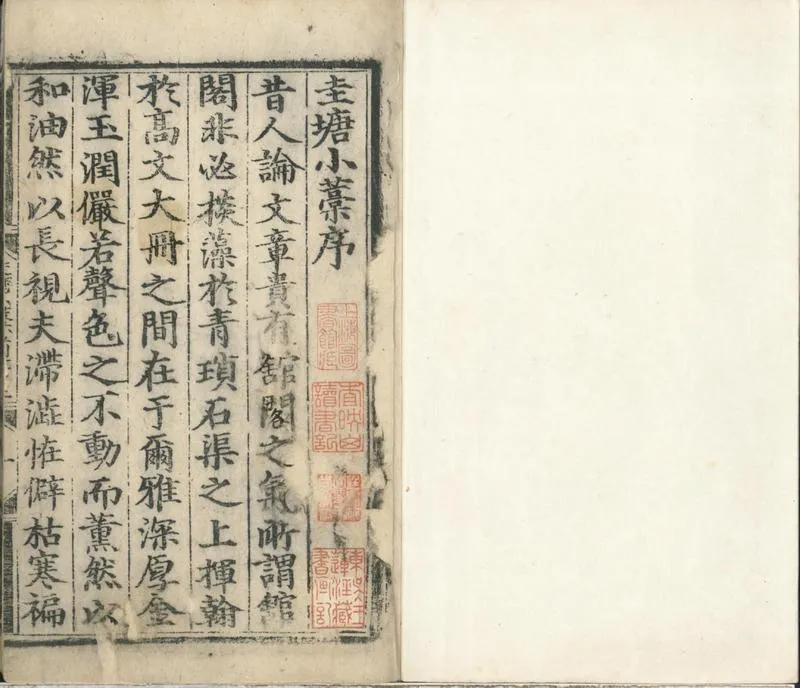 圭塘小藁序
昔人論文章貴有舘閣之氣所謂舘
閣非必掞藻於青瑣石渠之上揮翰
於高文大冊之間在于爾雅深厚金
渾玉潤儼若聲色之不動而薰然以
和油然以長視夫滯澁恠僻枯寒褊
上海圖書館藏